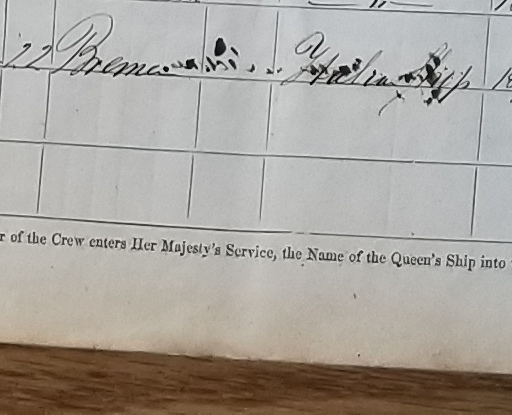 22 Bremen Italian Ship
r of the Crew enters Her Majesty's Service, the Name of the Queen's Ship into